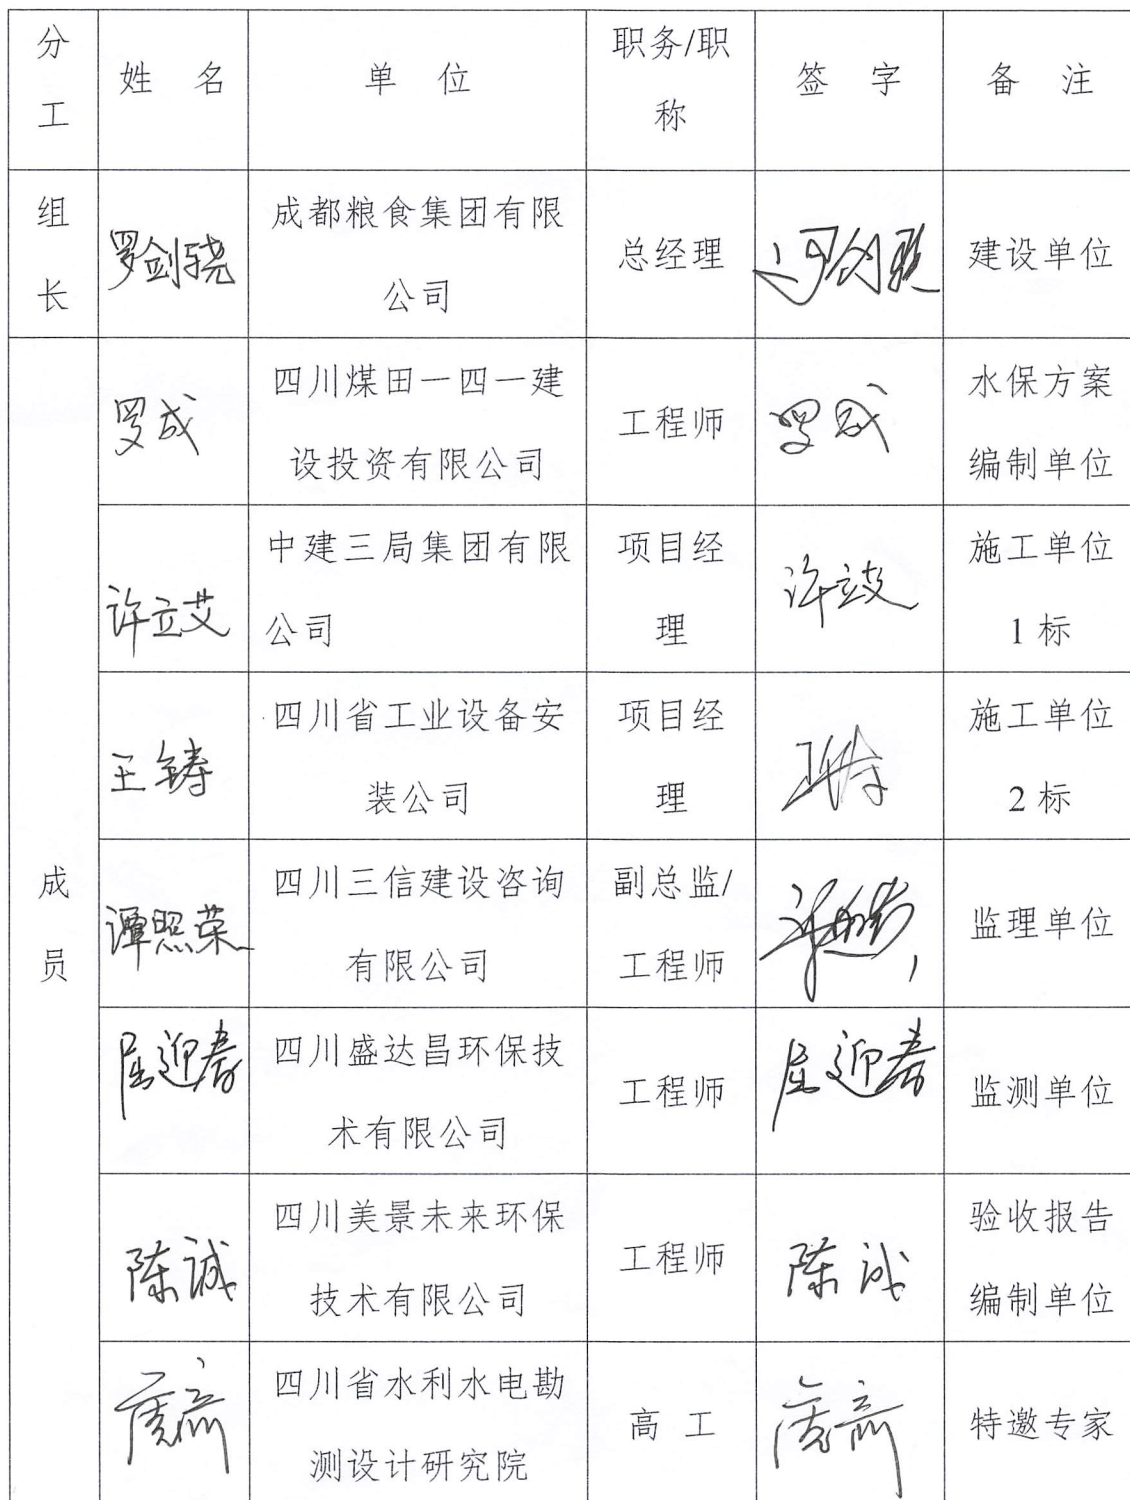 分工 姓 名 单 位 职务/职称 签 字 备 注
组长 罗剑骁 成都粮食集团有限公司 总经理 建设单位
成员
罗成 四川煤田一四一建设投资有限公司 工程师 罗成 水保方案编制单位
许立艾 中建三局集团有限公司 项目经理 许立艾 施工单位1标
王铸 四川省工业设备安装公司 项目经理 王铸 施工单位2标
谭照荣 四川三信建设咨询有限公司 副总监/工程师 监理单位
屈迎春 四川盛达昌环保技术有限公司 工程师 屈迎春 监测单位
陈诚 四川美景未来环保技术有限公司 工程师 陈诚 验收报告编制单位
四川省水利水电勘测设计研究院 高 工 特邀专家